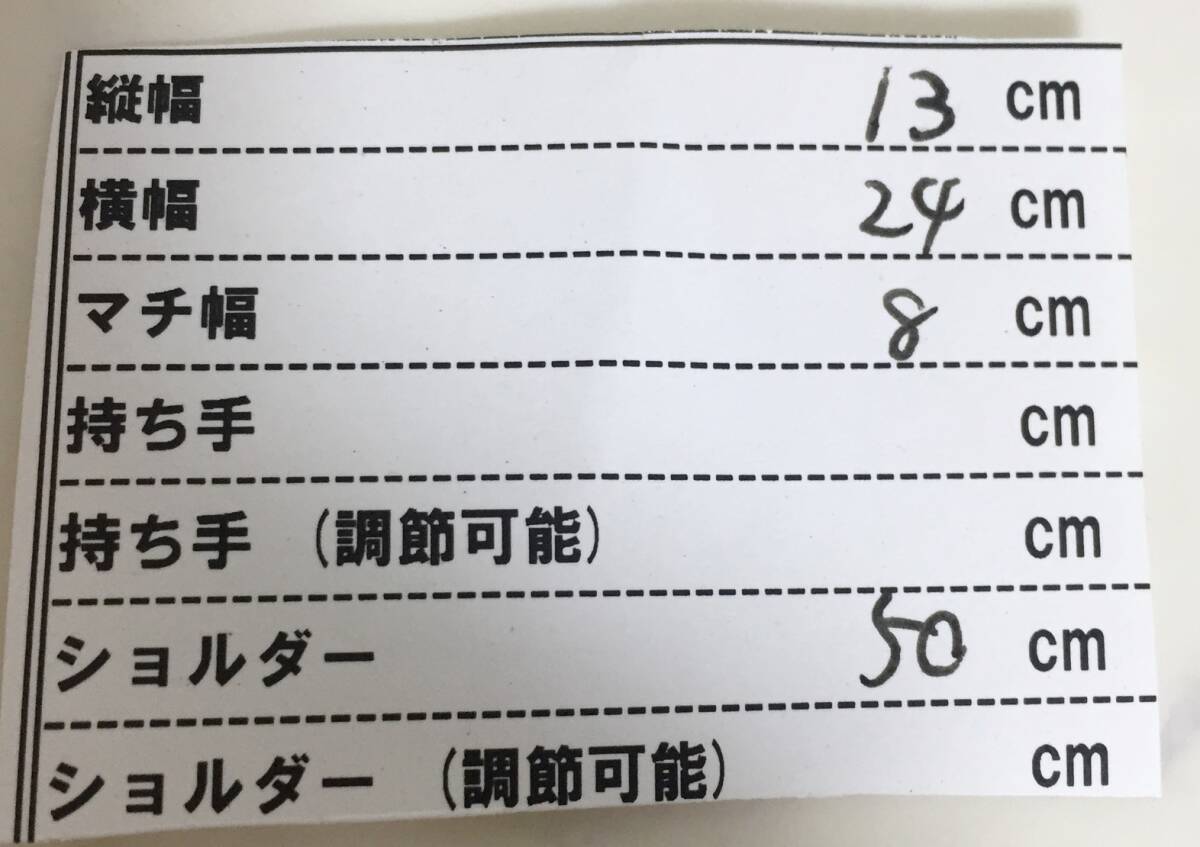 縦幅 13 cm
横幅 24 cm
マチ幅 8 cm
持ち手 cm
持ち手 (調節可能) cm
ショルダー 50 cm
ショルダー (調節可能) cm